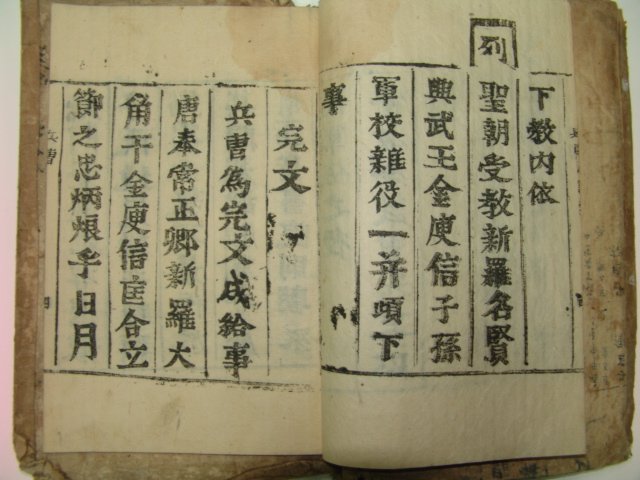 下教內依
列
聖朝受教新羅名賢
興武王金庾信子孫
軍校雜役一并頉下
事
完文
兵曹爲完文成給事
唐奉常正卿新羅大
角干金庾信匡合立
節之忠炳烺乎日月
兵曹
四